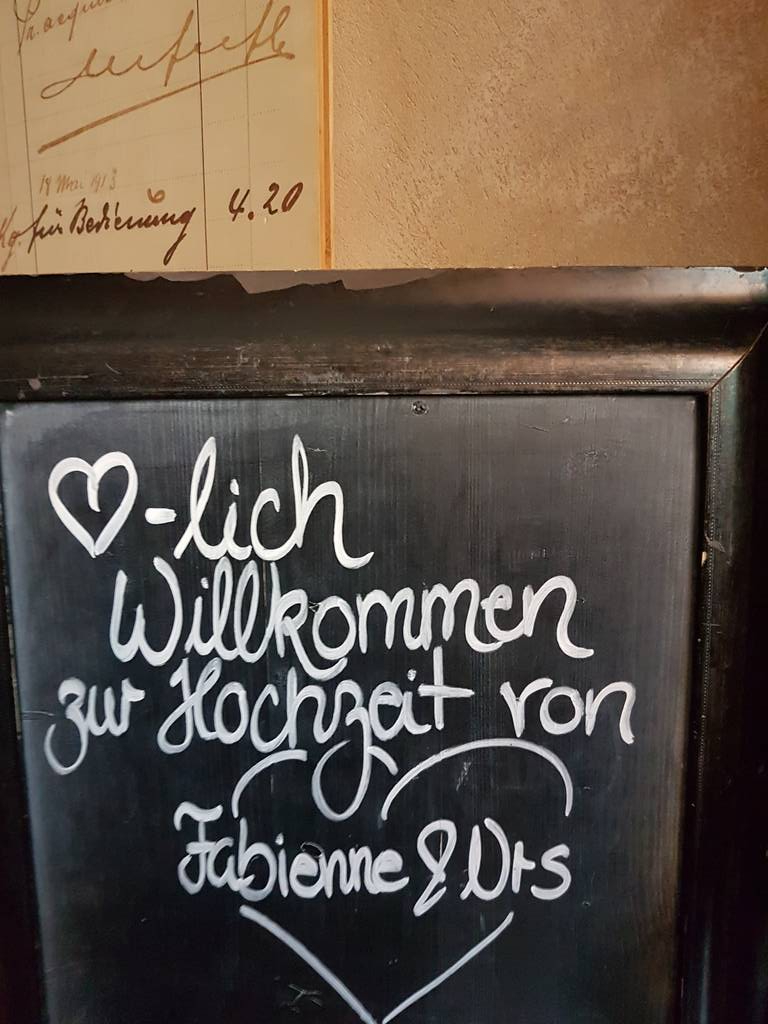 18 Mai 1913
für Bedienung 4.20
♡-lich
Willkommen
zur Hochzeit von
Fabienne & Urs